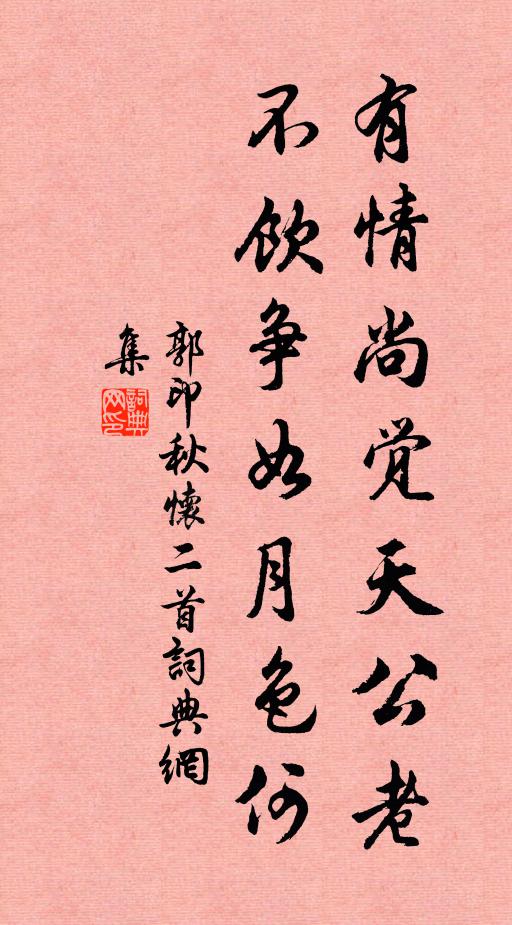 有情尚覺天公老
不飲争如月色何
郭印秋懷二首詞典網
集
詞典
网印